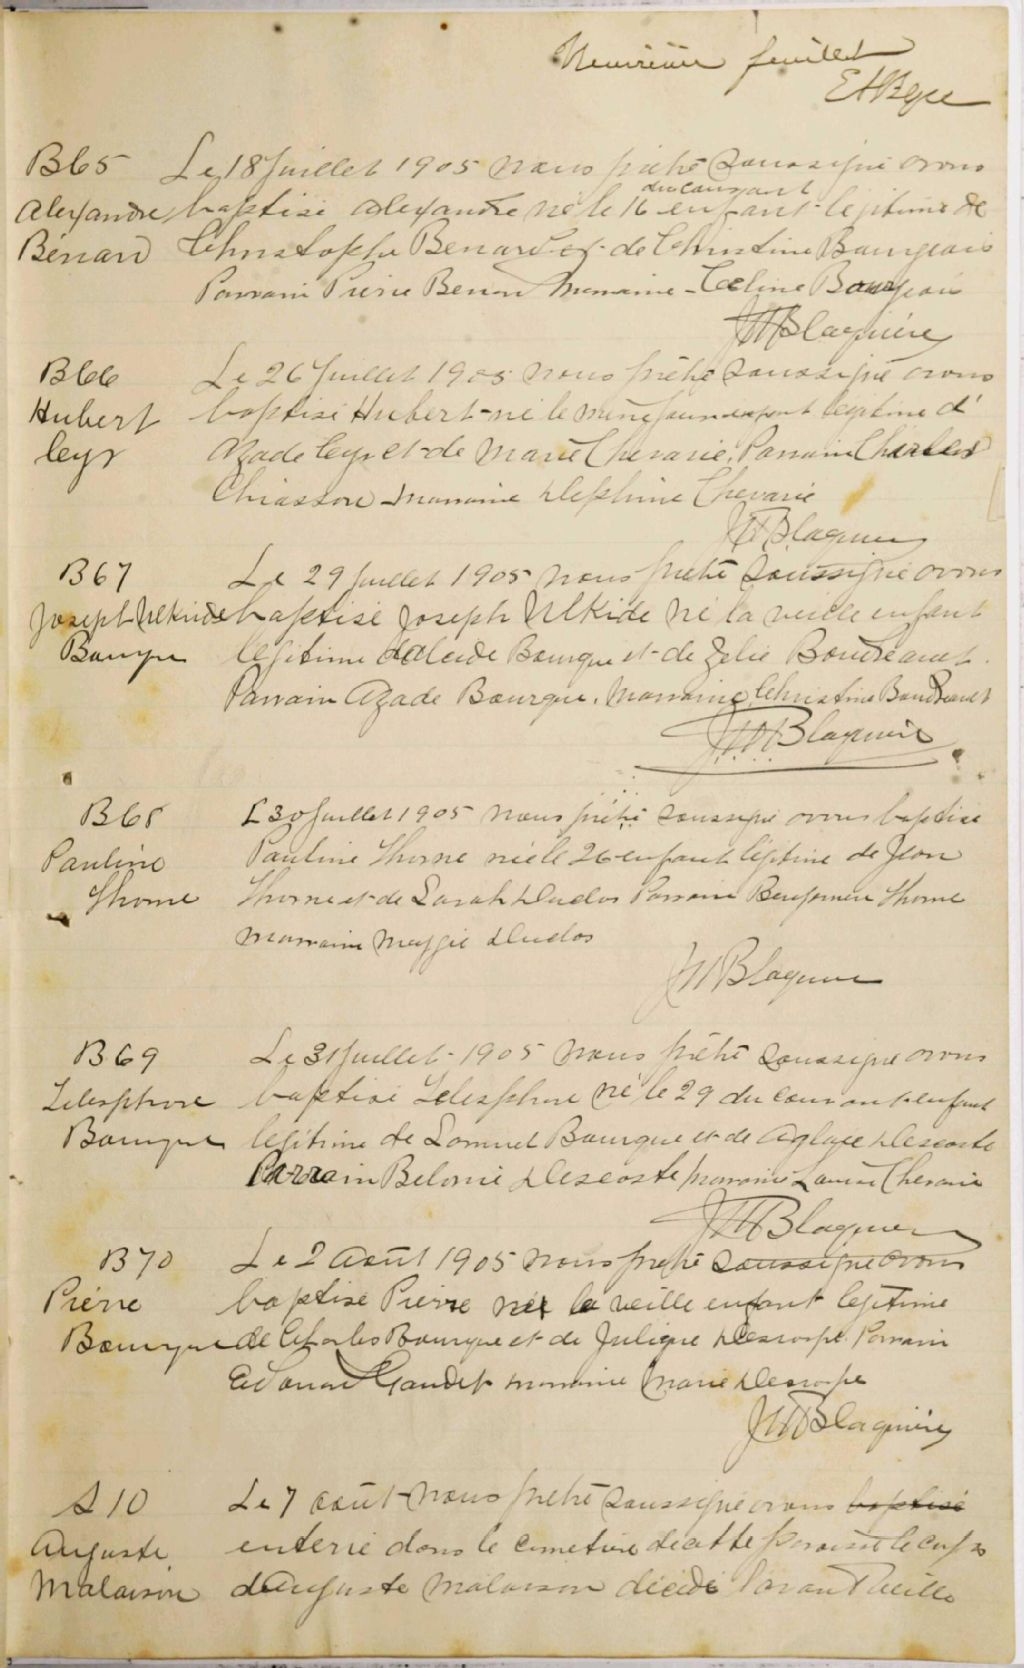 feuillet
B65 Le 18 Juillet 1905 nous prêtre soussigné avons
du courant
Alexandre baptisé Alexandre né le 16 enfant légitime de
Bénard Christophe Benard et de Christine Bourgeois
Parrain Pierre Benard Marraine Celine Bourgeois
JM Blaquière
B66 Le 26 Juillet 1905 nous prêtre soussigné avons
Hubert baptisé Hubert né le même jour enfant légitime d'
Cyr Azade Cyr et de Marie Chevarie. Parrain Charles
Chiasson marraine Delphine Chevarie
JM Blaquière
B67 Le 29 Juillet 1905 nous prêtre soussigné avons
Joseph Ulkide baptisé Joseph Ulkide né la veille enfant
Bourque légitime d'Alcide Bourque et de Zelie Boudreault.
Parrain Azade Bourque. Marraine Christine Boudreault
JM Blaquière
B68 L 30 Juillet 1905 nous prêtre soussigné avons baptisé
Pauline Pauline Thorne née le 26 enfant légitime de Jean
Thorne Thorne et de Sarah Duclos Parrain Benjamin Thorne
marraine Maggie Duclos
JM Blaquière
B69 Le 31 Juillet 1905 nous prêtre soussigné avons
Telesphore baptisé Telesphore né le 29 du courant enfant
Bourque légitime de Bourque et de Aglaée Descoste
Parrain Belonie Descoste marraine Chevarie
JM Blaquière
B70 Le 2 Août 1905 nous prêtre soussigné avons
Pierre baptisé Pierre né la veille enfant légitime
Bourque de Charles Bourque et de Desrospe. Parrain
Edouard Gaudet marraine Marie Desrospe
JM Blaquière
S 10 Le 7 août nous prêtre soussigné avons baptisé
Auguste enterré dans le cimetière de cette paroisse le corps
Malaison d'Auguste Malaison décédé l'avant veille